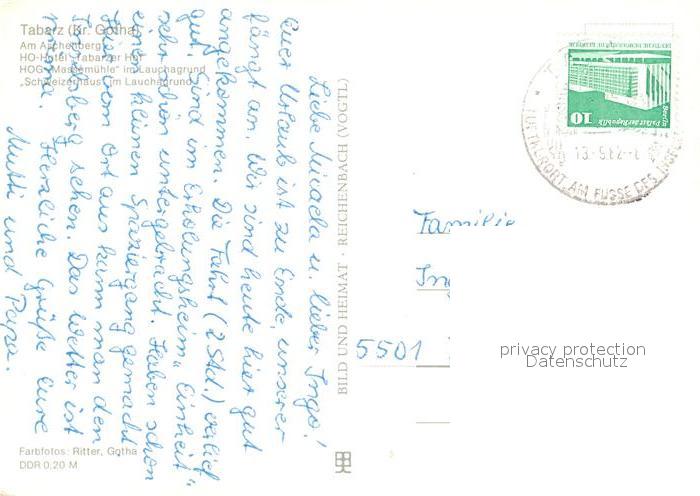 Tabarz (Kr. Gotha)
Am Aschenberg
HO-Hotel „Tabarzer Hof“
HOG „Massemühle“ im Lauchagrund
„Schweizerhaus“ im Lauchagrund
Liebe Micaela u. lieber Ingo!
Euer Urlaub ist zu Ende, unserer
fängt an. Wir sind heute hier gut
angekommen. Die Fahrt (2 Std.) verlief
gut. Sind im Erholungsheim „Einheit“
sehr schön untergebracht. Haben schon
einen kleinen Spaziergang gemacht.
Hier vom Ort aus kann man den
Inselsberg sehen. Das Wetter ist
prima. Herzliche Grüße Eure
Mutti und Papa.
BILD UND HEIMAT · REICHENBACH (VOGTL)
Farbfotos: Ritter, Gotha
DDR 0,20 M
DEUTSCHE DEMOKRATISCHE REPUBLIK
Berlin
Palast der Republik
10
13.-9.82
KURORT AM FUSSE DES INSELS
Familie
Ing
5501
privacy protection
Datenschutz